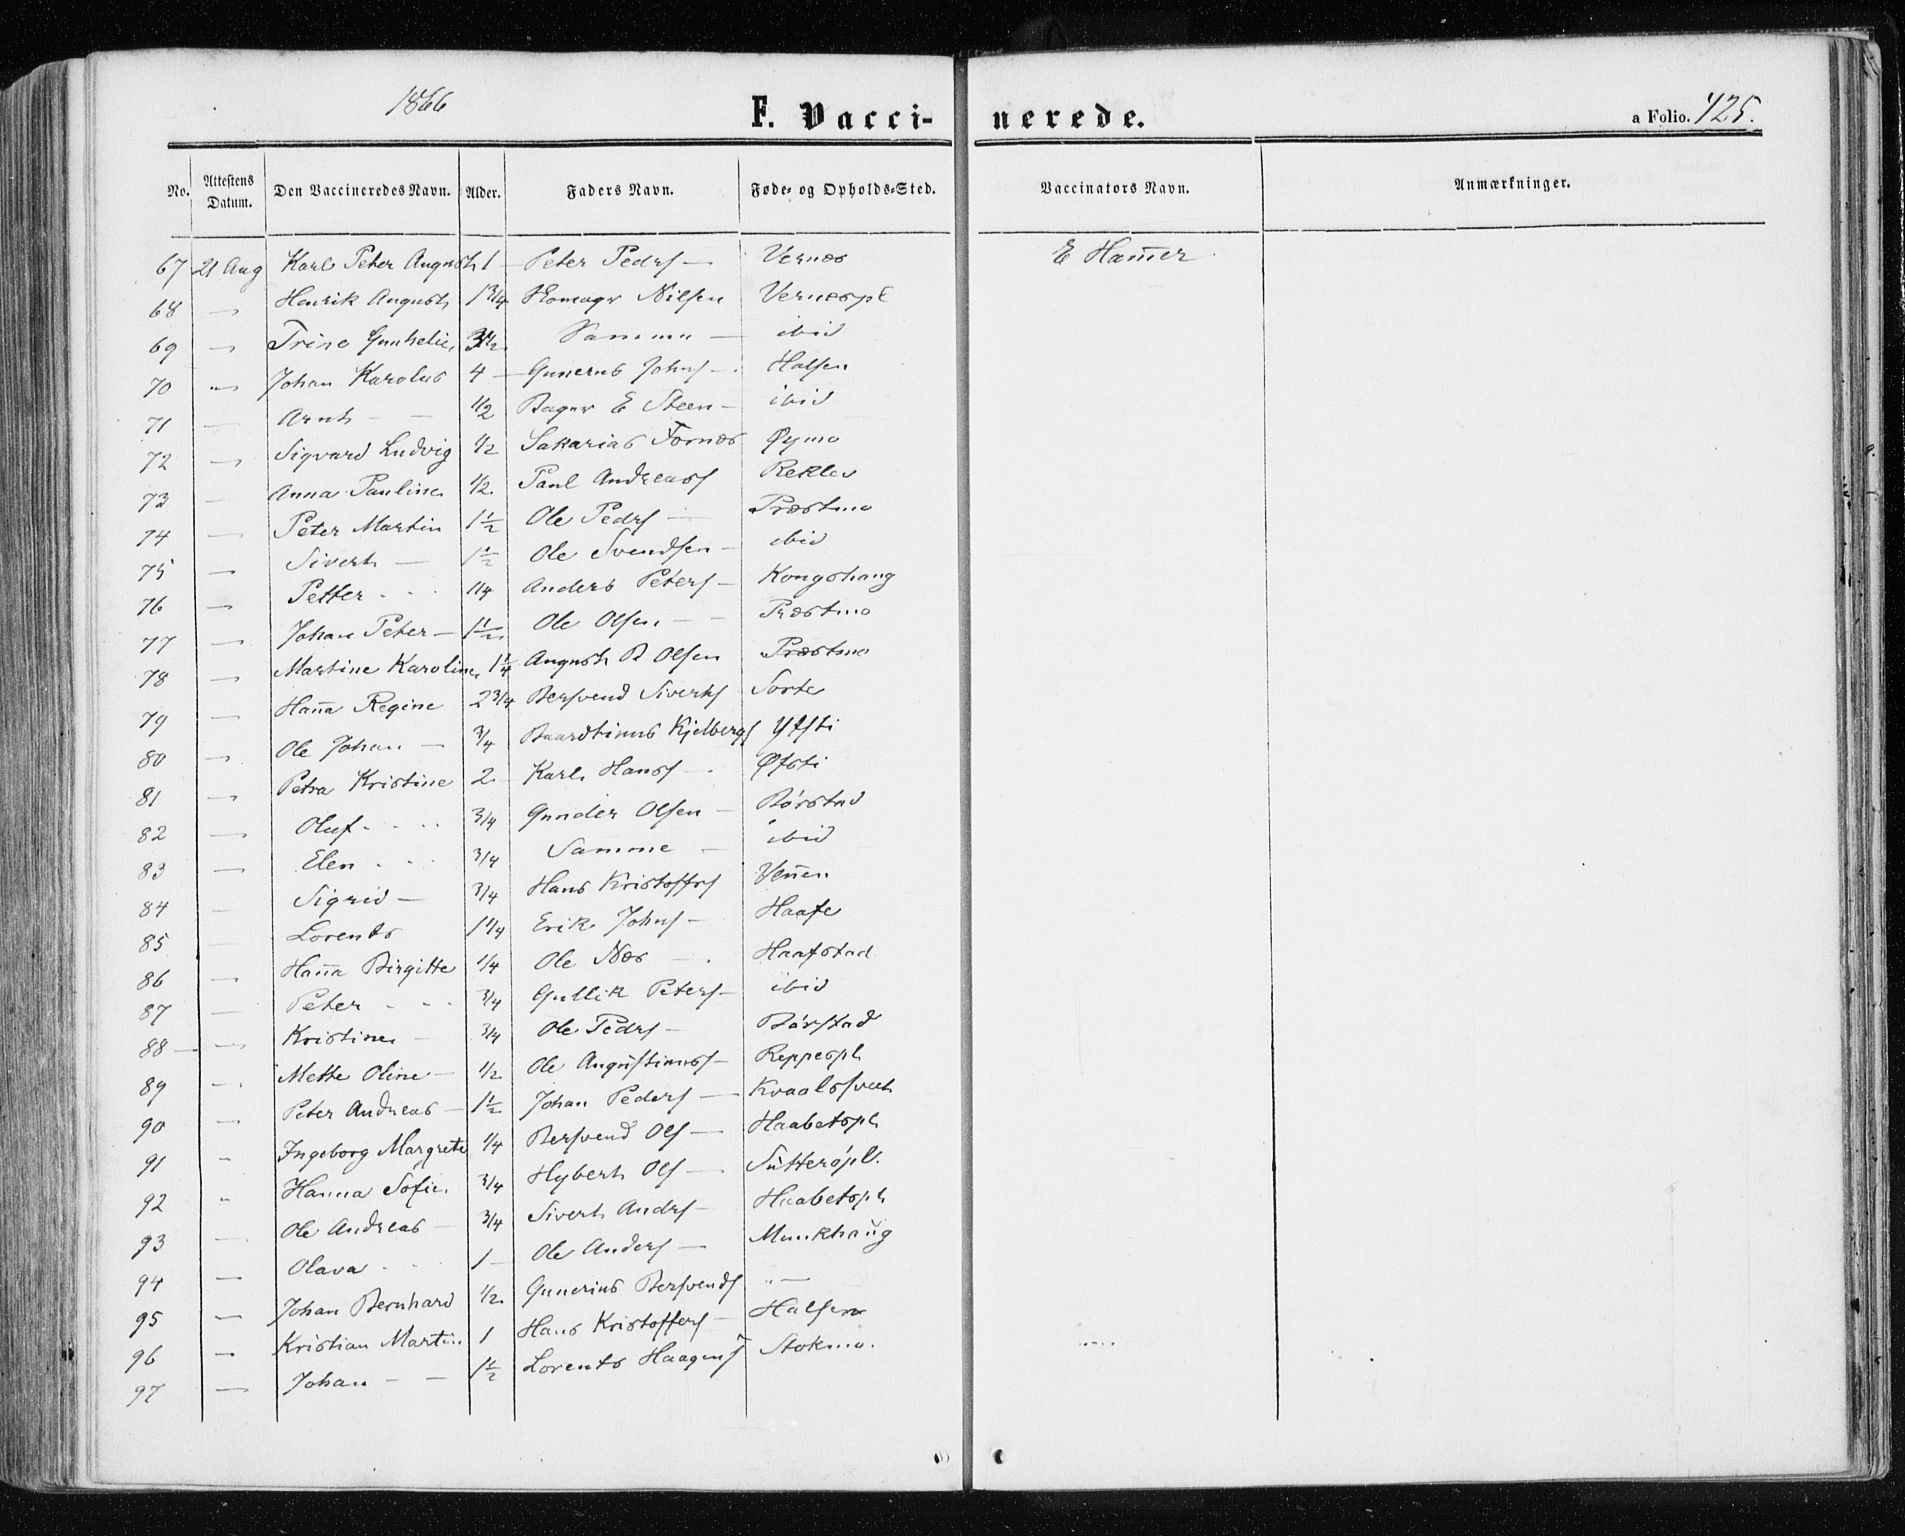 1866
F. Vaccinerede.
a Folio. 425.
No. Attestens Datum. Den Vaccineredes Navn. Alder. Faders Navn. Føde- og Opholds-Sted. Vaccinators Navn. Anmærkninger.
67 21 Aug Karl Peter August 1 - Peter Peders - Vernes E Ham̄er
68 - Henrik August 1 3/4 Nilsen Vernespl
69 - Trine 3 1/2 Samme - ibid
70 - Johan Karolus 4 - Gunerus Johns - Halsen
71 - Arnt - - 1/2 E Steen - ibid
72 - Sigvard Ludvig 1/2 Sakarias Fornes Øymo
73 - Anna Pauline 1/2 Paul Andreass
74 - Peter Martin 1 1/2 Ole Pedrs - Præstmo
75 - Sivert - 1 1/2 Ole Svendsen - ibid
76 - Petter - - 1/4 Anders Peters - Kongshaug
77 - Johan Peter - 1 1/2 Ole Olsen - - Præstmo
78 - Martine Karoline 1 1/4 August B Olsen Præstmo
79 - Han̄a Regine 2 3/4 Bersvend Siverts Sorte
80 - Ole Johan - 3/4 Baardtinus Kjelbergs
81 - Petra Kristine 2 - Karl Hans - Øfsti
82 - Oluf - - - 3/4 Gunder Olsen - Børstad
83 - Elen - - 3/4 Samme - ibid
84 - Sigrid - 3/4 Hans Kristoffrs Ven̄en
85 - Lorents 1 1/4 Erik Johns - Haafe
86 - Han̄a Birgitte 1/4 Ole Næs - Haafstad
87 - Peter - - 3/4 Gullik Peters - ibid
88 - Kristine - 3/4 Ole Pedrs - Børstad
89 - Mette Oline - 1/2 Ole Augustinuss - Reppespl
90 - Peter Andreas - 1 1/2 Johan Peders - Kvaalsvet
91 - Ingeborg Margrete 1/4 Bersvend Ols - Haabetspl
92 - Hanna Sofie 3/4 Hybert Ols - Sutterøpl.
93 - Ole Andreas - 3/4 Sivert Andrs - Haabetspl
94 - Olava - - 1 - Ole Anders - Munkhaug
95 - Johan Bernhard 1/2 Gunerius Bersvends " -
96 - Kristian Martin 1 Hans Kristoffers - Halsen
97 - Johan - - 1 1/2 Lorents Haagens Stokmo.